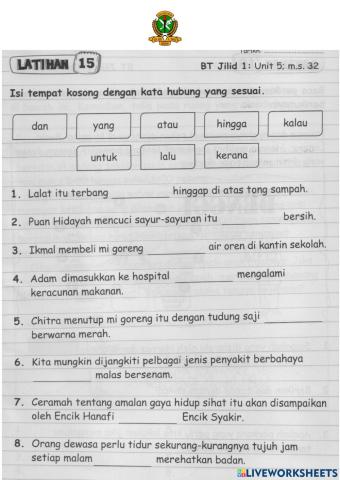 LATIHAN 15
BT Jilid 1: Unit 5; m.s. 32
Isi tempat kosong dengan kata hubung yang sesuai.
dan yang atau hingga kalau
untuk lalu kerana
1. Lalat itu terbang ____________ hinggap di atas tong sampah.
2. Puan Hidayah mencuci sayur-sayuran itu ____________ bersih.
3. Ikmal membeli mi goreng ____________ air oren di kantin sekolah.
4. Adam dimasukkan ke hospital ____________ mengalami
keracunan makanan.
5. Chitra menutup mi goreng itu dengan tudung saji ____________
berwarna merah.
6. Kita mungkin dijangkiti pelbagai jenis penyakit berbahaya
____________ malas bersenam.
7. Ceramah tentang amalan gaya hidup sihat itu akan disampaikan
oleh Encik Hanafi ____________ Encik Syakir.
8. Orang dewasa perlu tidur sekurang-kurangnya tujuh jam
setiap malam ____________ merehatkan badan.
LIVEWORKSHEETS